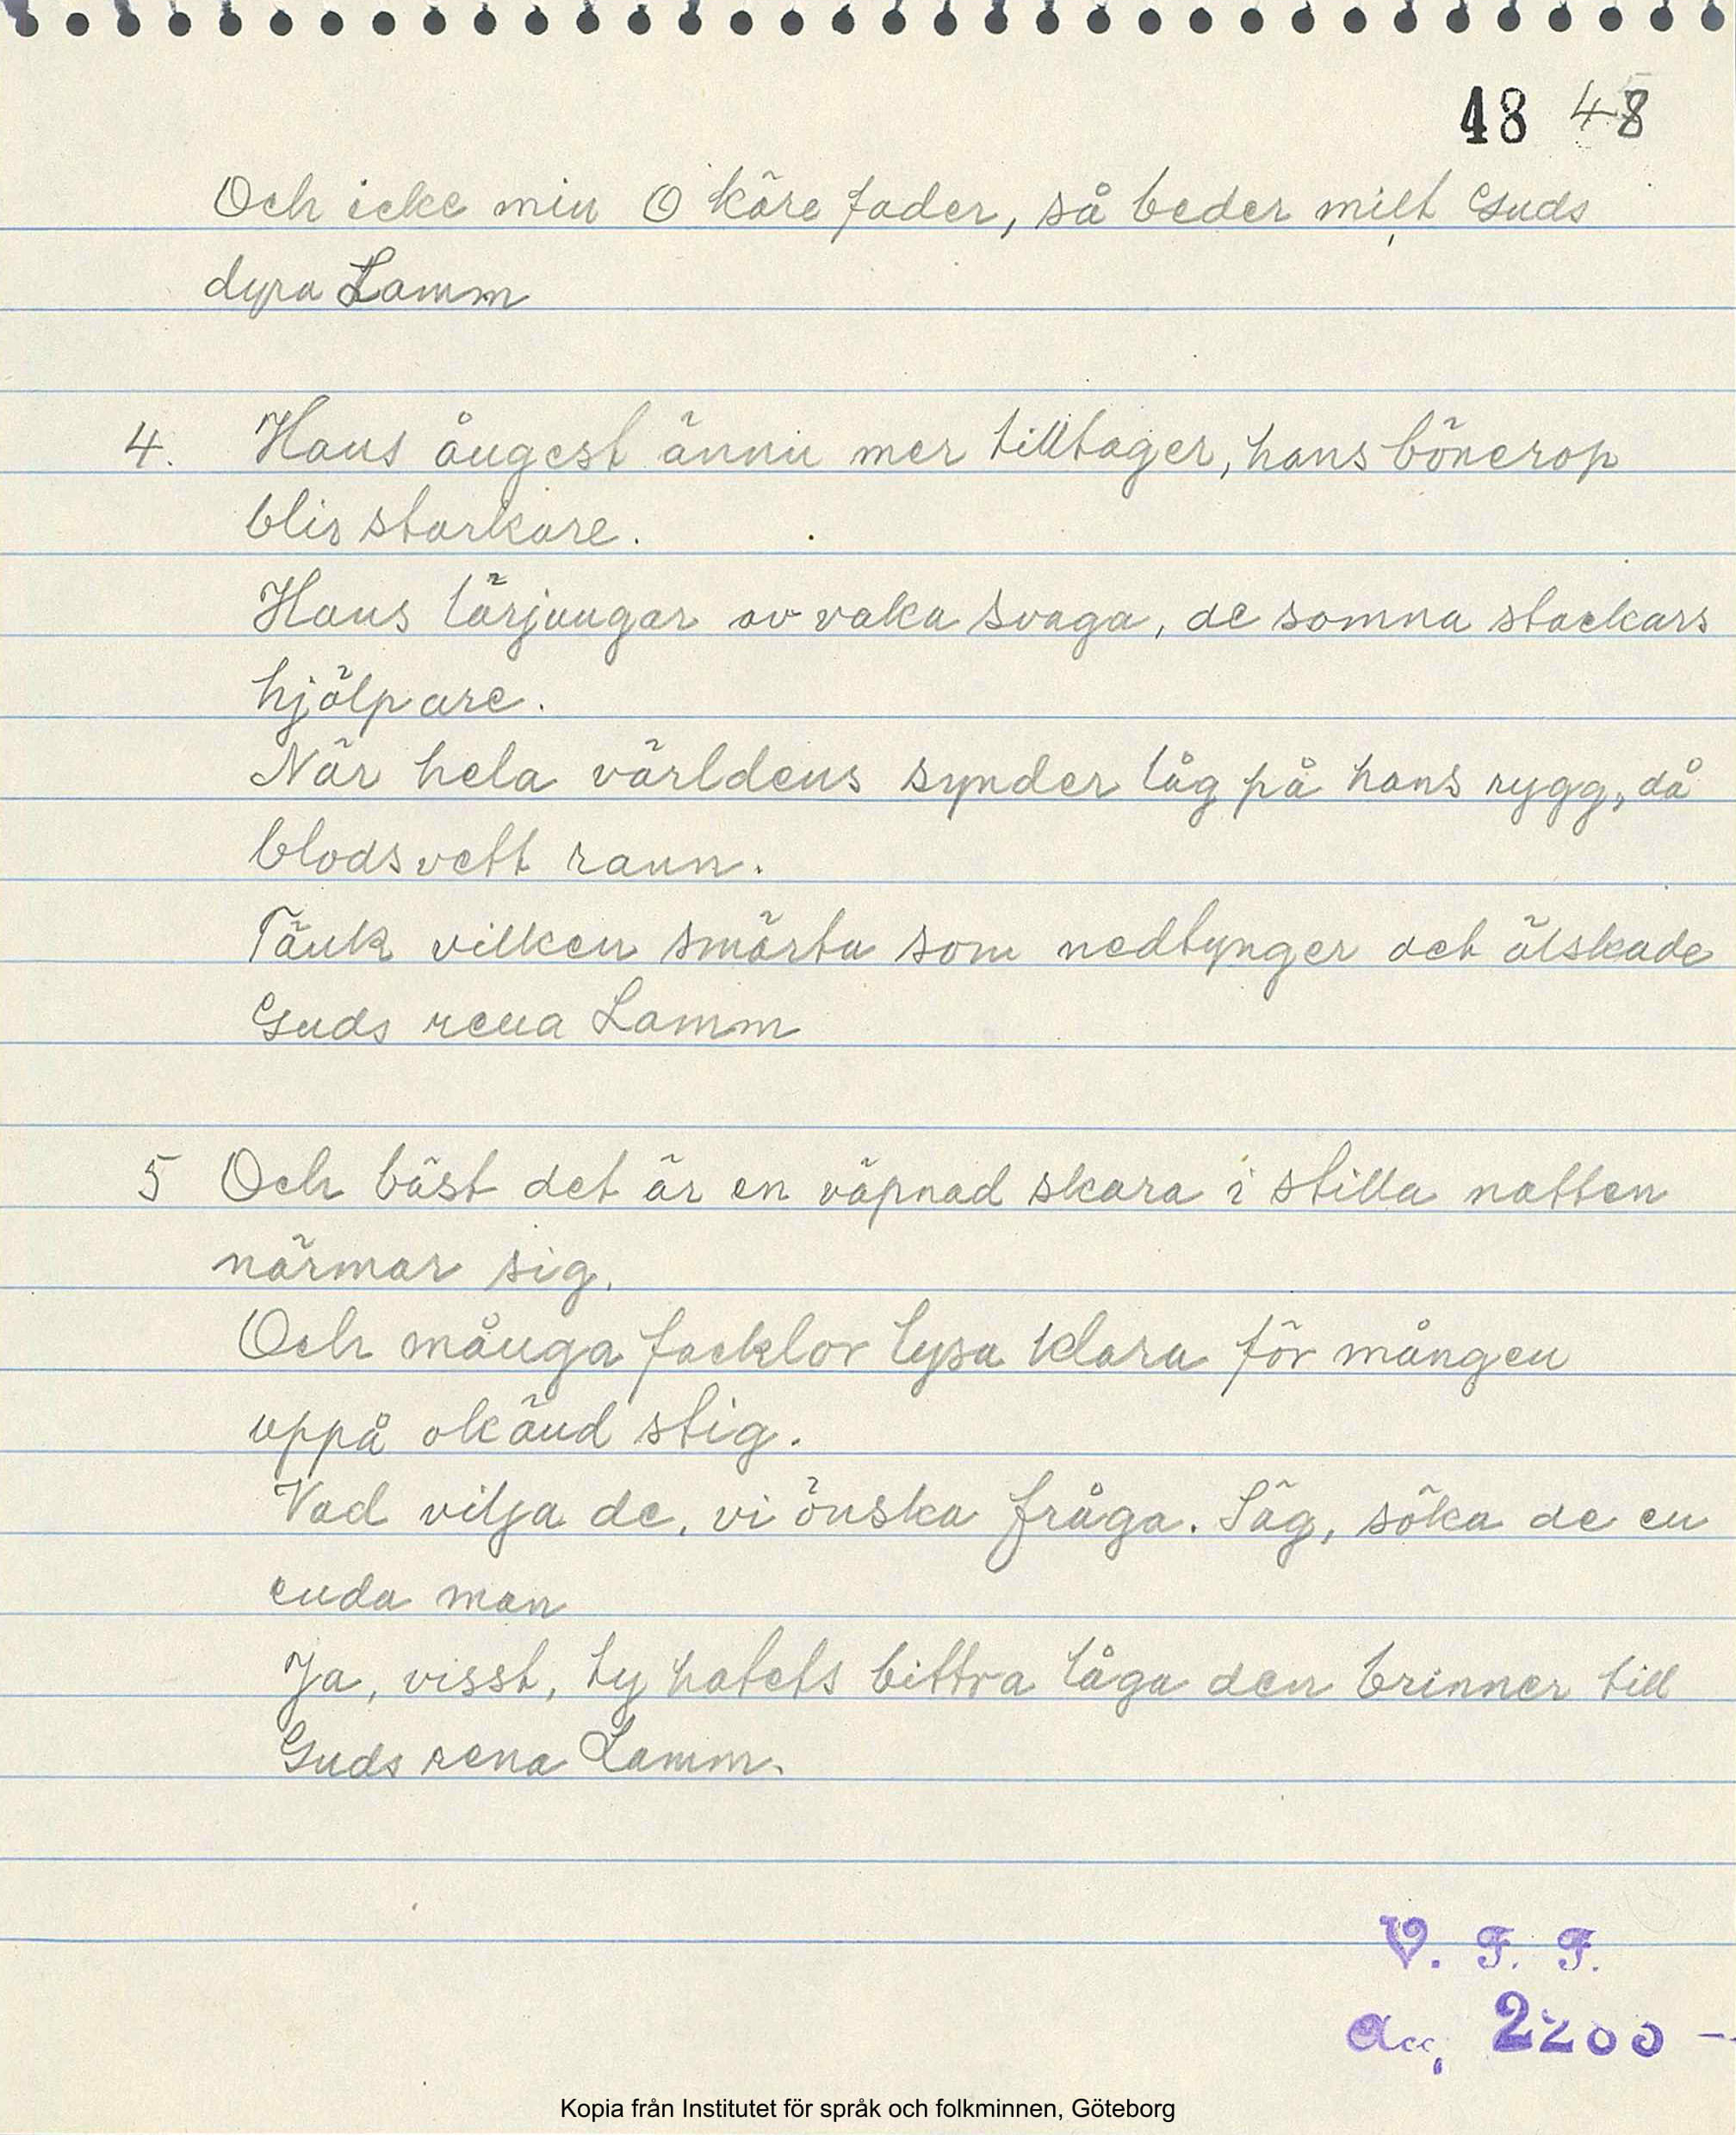 48 48
Och icke min O käre fader, så beder milt Guds
dyra Lamm
4. Hans ångest ännu mer tilltager, hans bönerop
blir starkare.
Hans lärjungar av vaka svaga, de somna stackars
hjälpare.
När hela världens synder låg på hans rygg, då
blodsvett rann.
Tänk vilken smärta som nedtynger det älskade
Guds rena Lamm
5 Och bäst det är en väpnad skara i stilla natten
närmar sig.
Och många facklor lysa klara för mången
uppå okänd stig.
Vad vilja de, vi önska fråga. Säg, söka de en
enda man
Ja, visst, ty hatets bittra låga den brinner till
Guds rena Lamm.
V. F. F.
Acc, 2200 -
Kopia från Institutet för språk och folkminnen, Göteborg